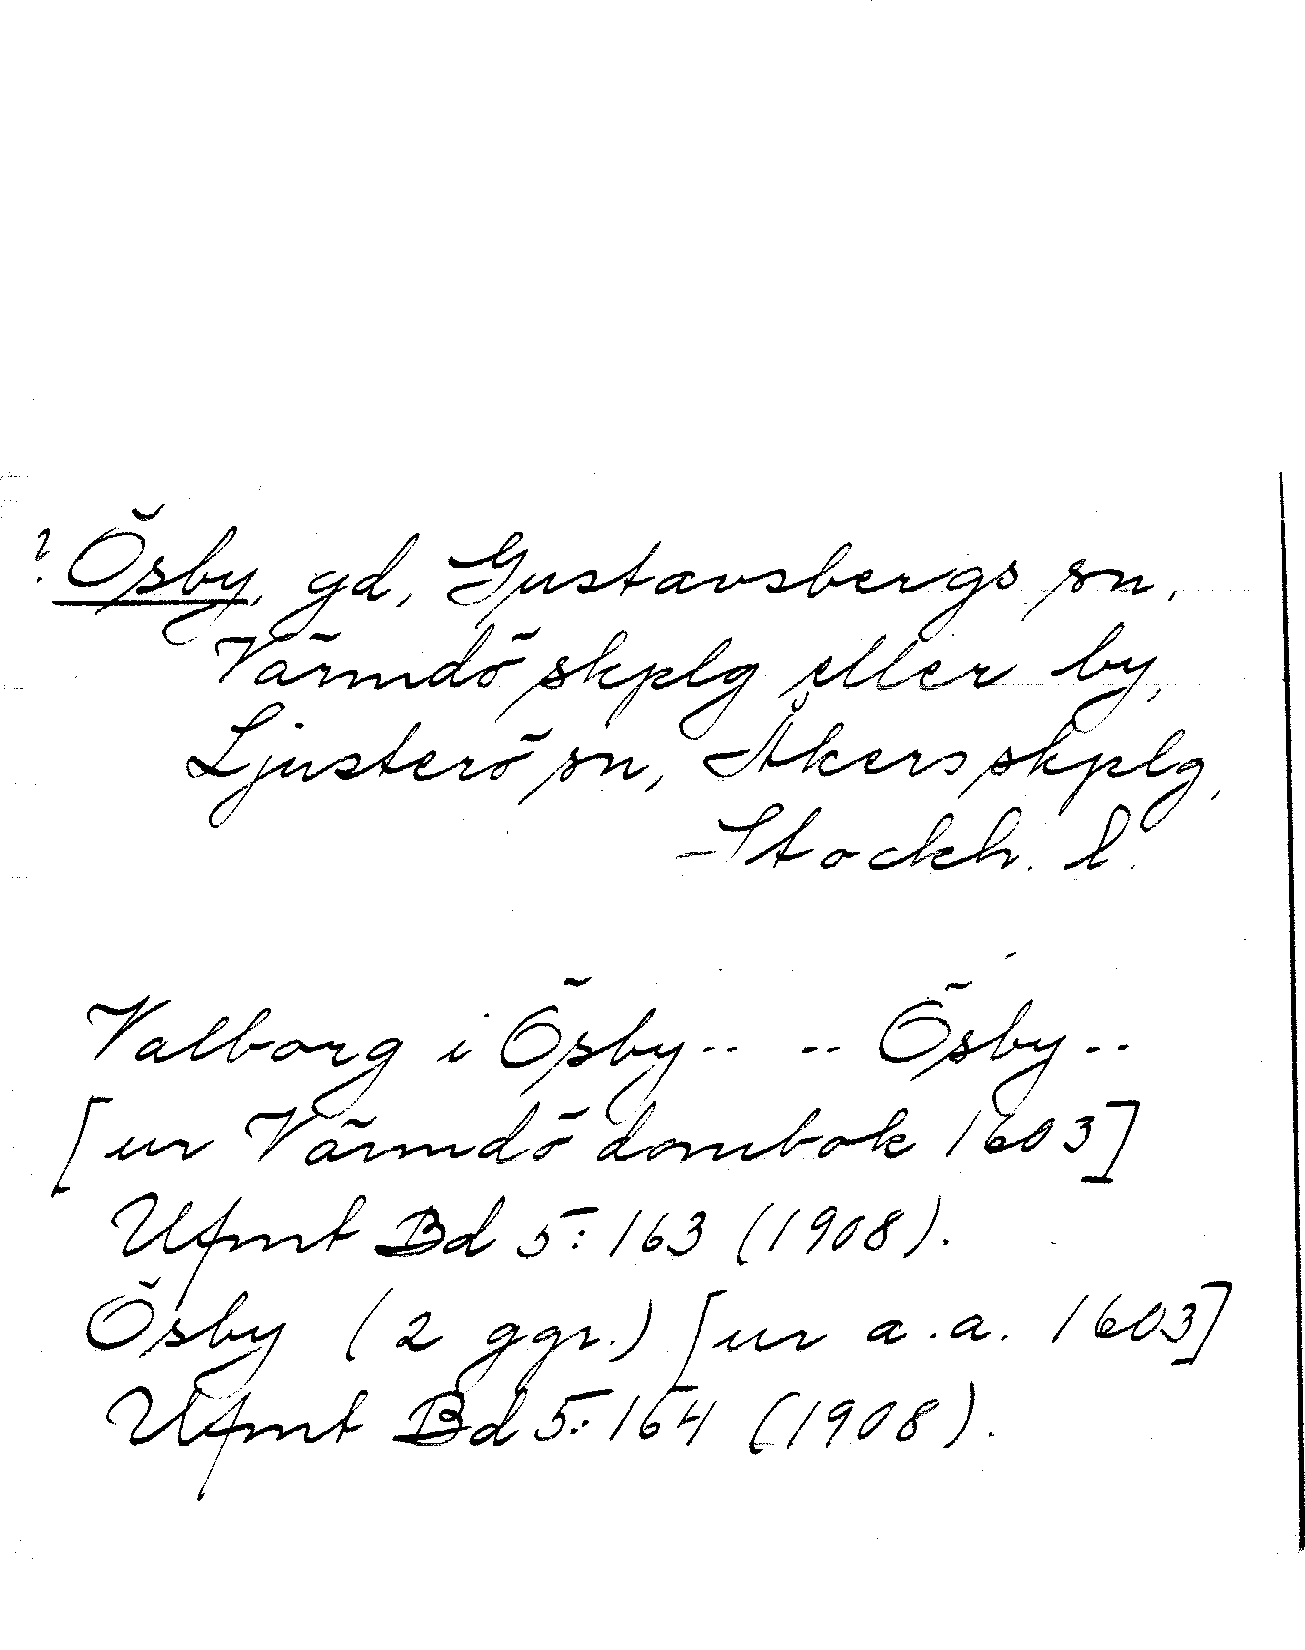 ? Ösby, gd, Gustavsbergs sn,
Värmdö skplg eller by,
Ljusterö sn, Åkers skplg,
Stockh. l.
Valborg i Ösby.. .. Ösby..
[ur Värmdö dombok 1603]
Ufmt Bd 5:163 (1908).
Ösby (2 ggr.) [ur a.a. 1603]
Ufmt Bd 5:164 (1908).